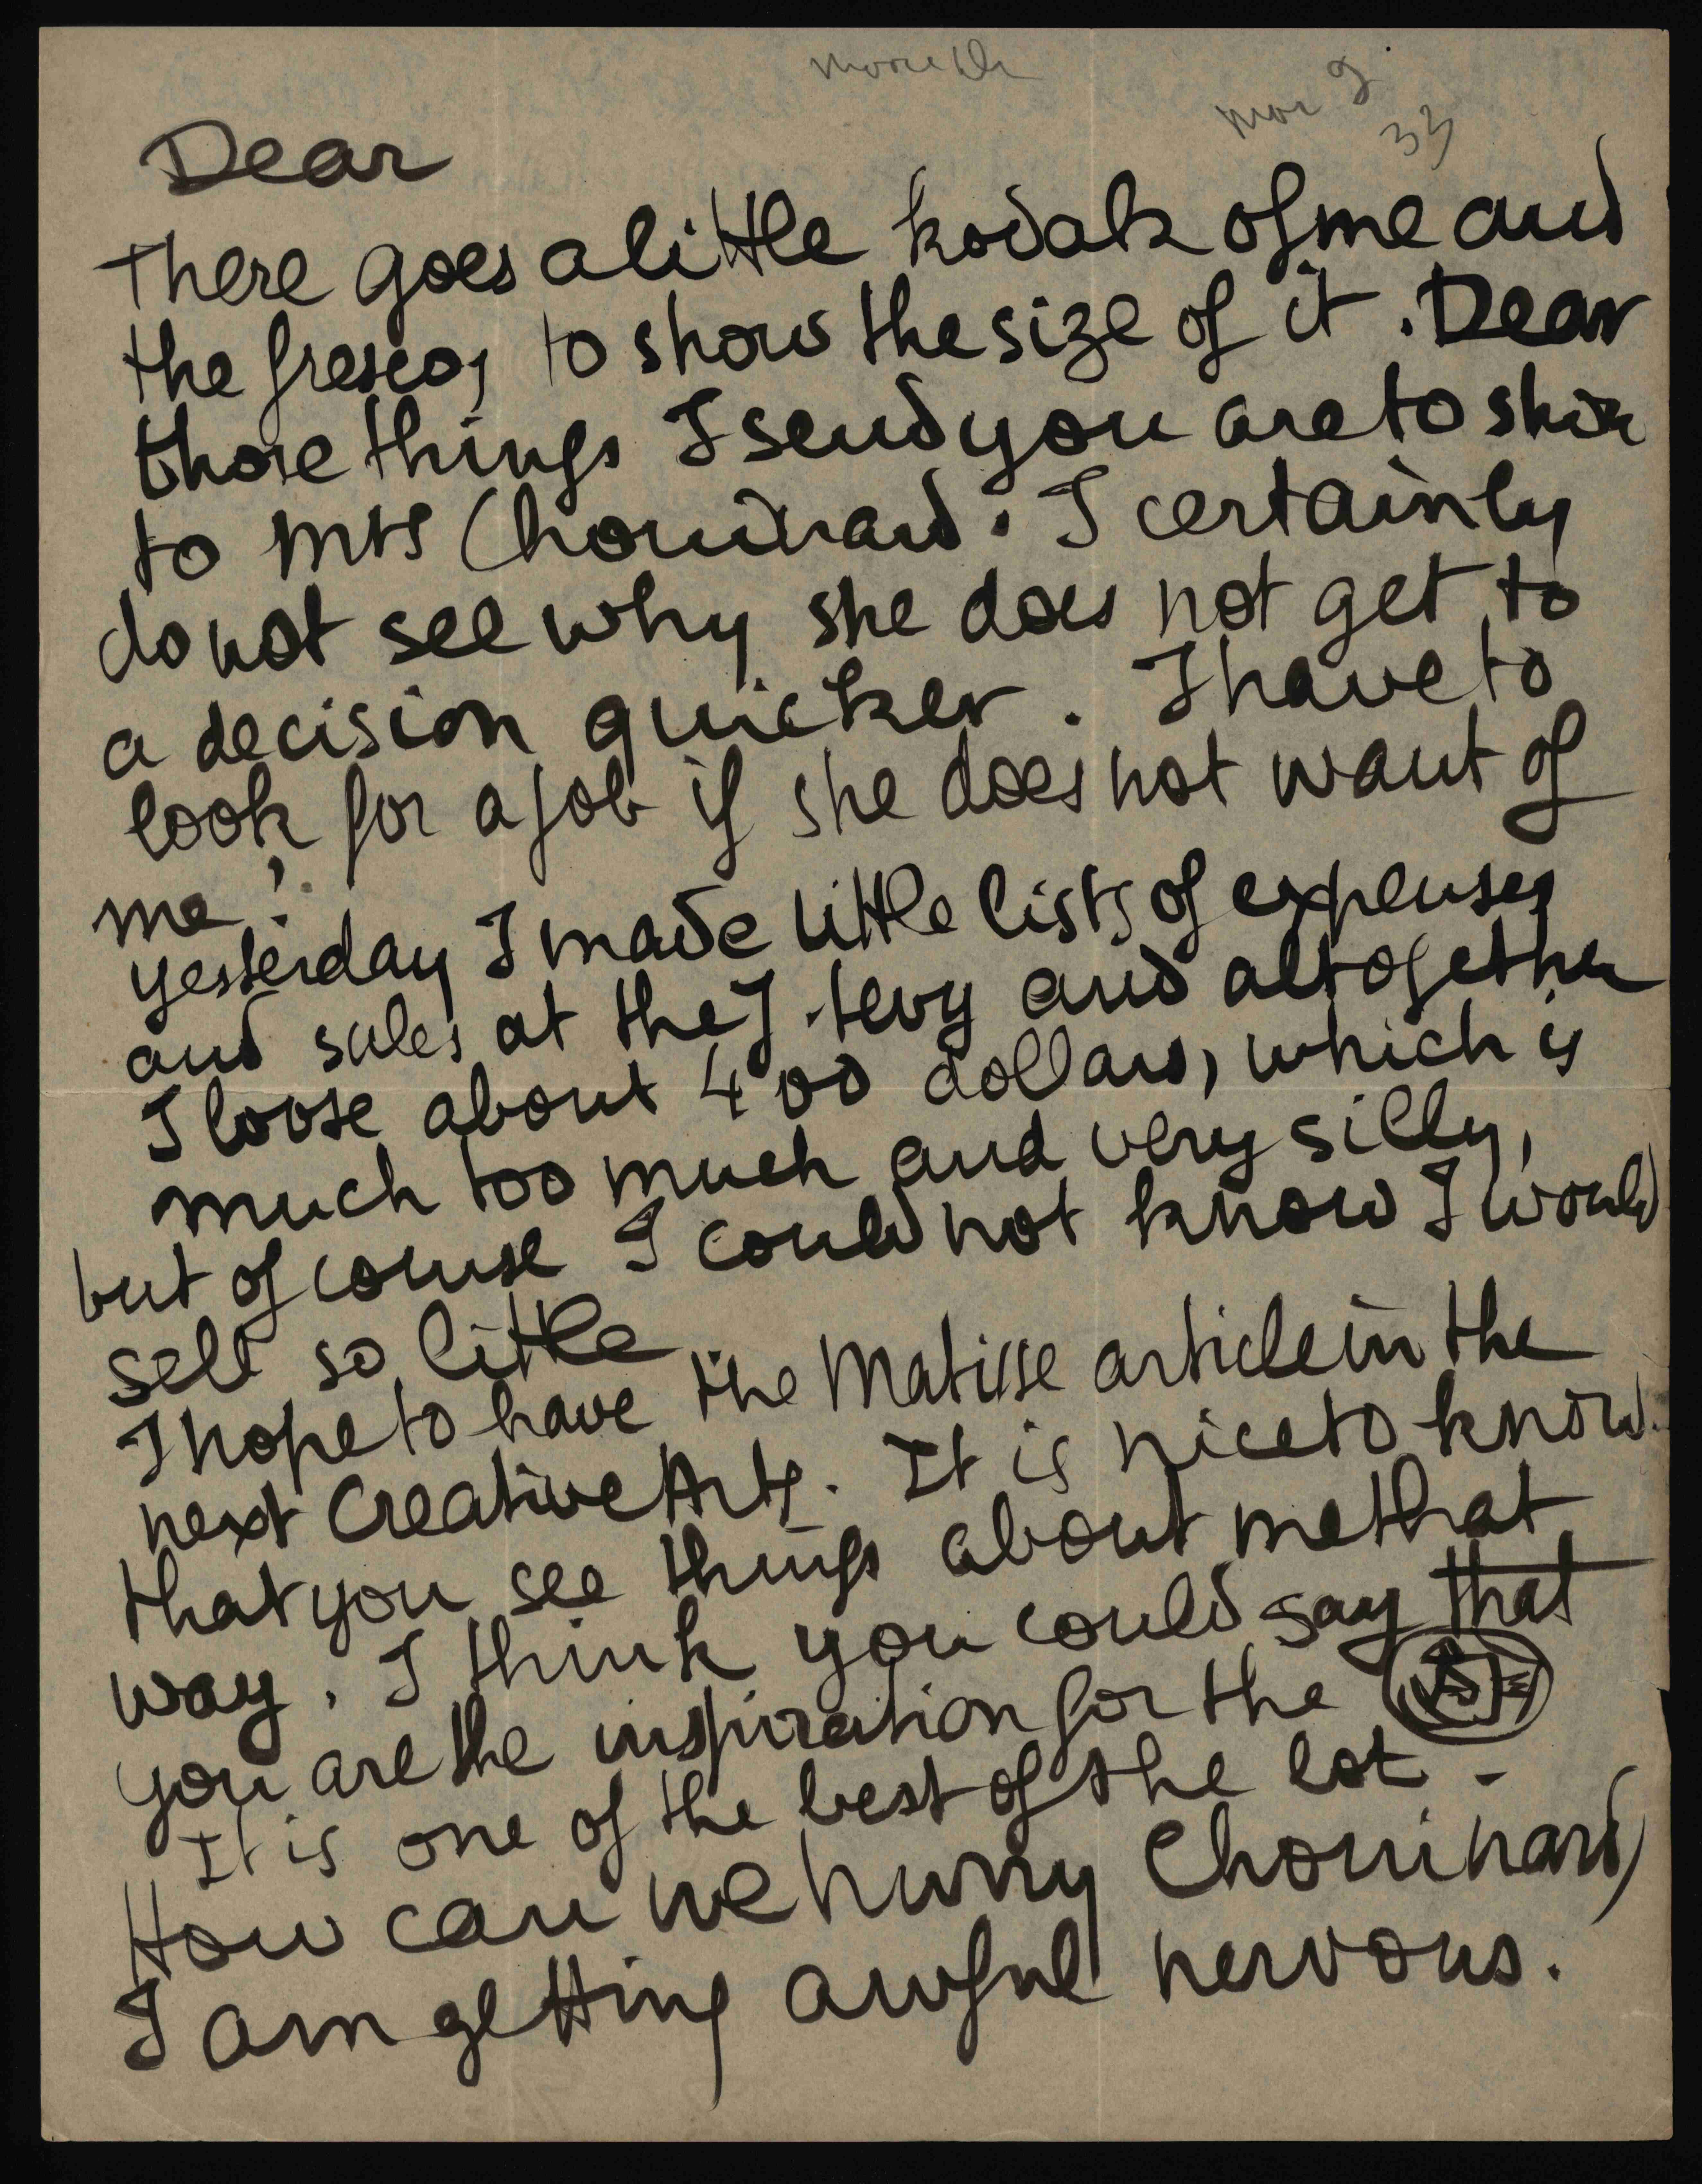 Mar 9
33
Dear
There goes a little kodak of me and
the fresco, to show the size of it. Dear
those things I send you are to show
to Mrs Chouinard. I certainly
do not see why she does not get to
a decision quicker. I have to
look for a job if she does not want of
me!
yesterday I made little lists of expenses
and sales at the J. Levy and altogether
I loose about 400 dollars, which is
much too much and very silly,
but of course I could not know I would
sell so little
I hope to have the Matisse article in the
next Creative Arts. It is nice to know
that you see things about me that
way. I think you could say that
you are the inspiration for the
It is one of the best of the lot -
How can we hurry Chouinard
I am getting awful nervous.